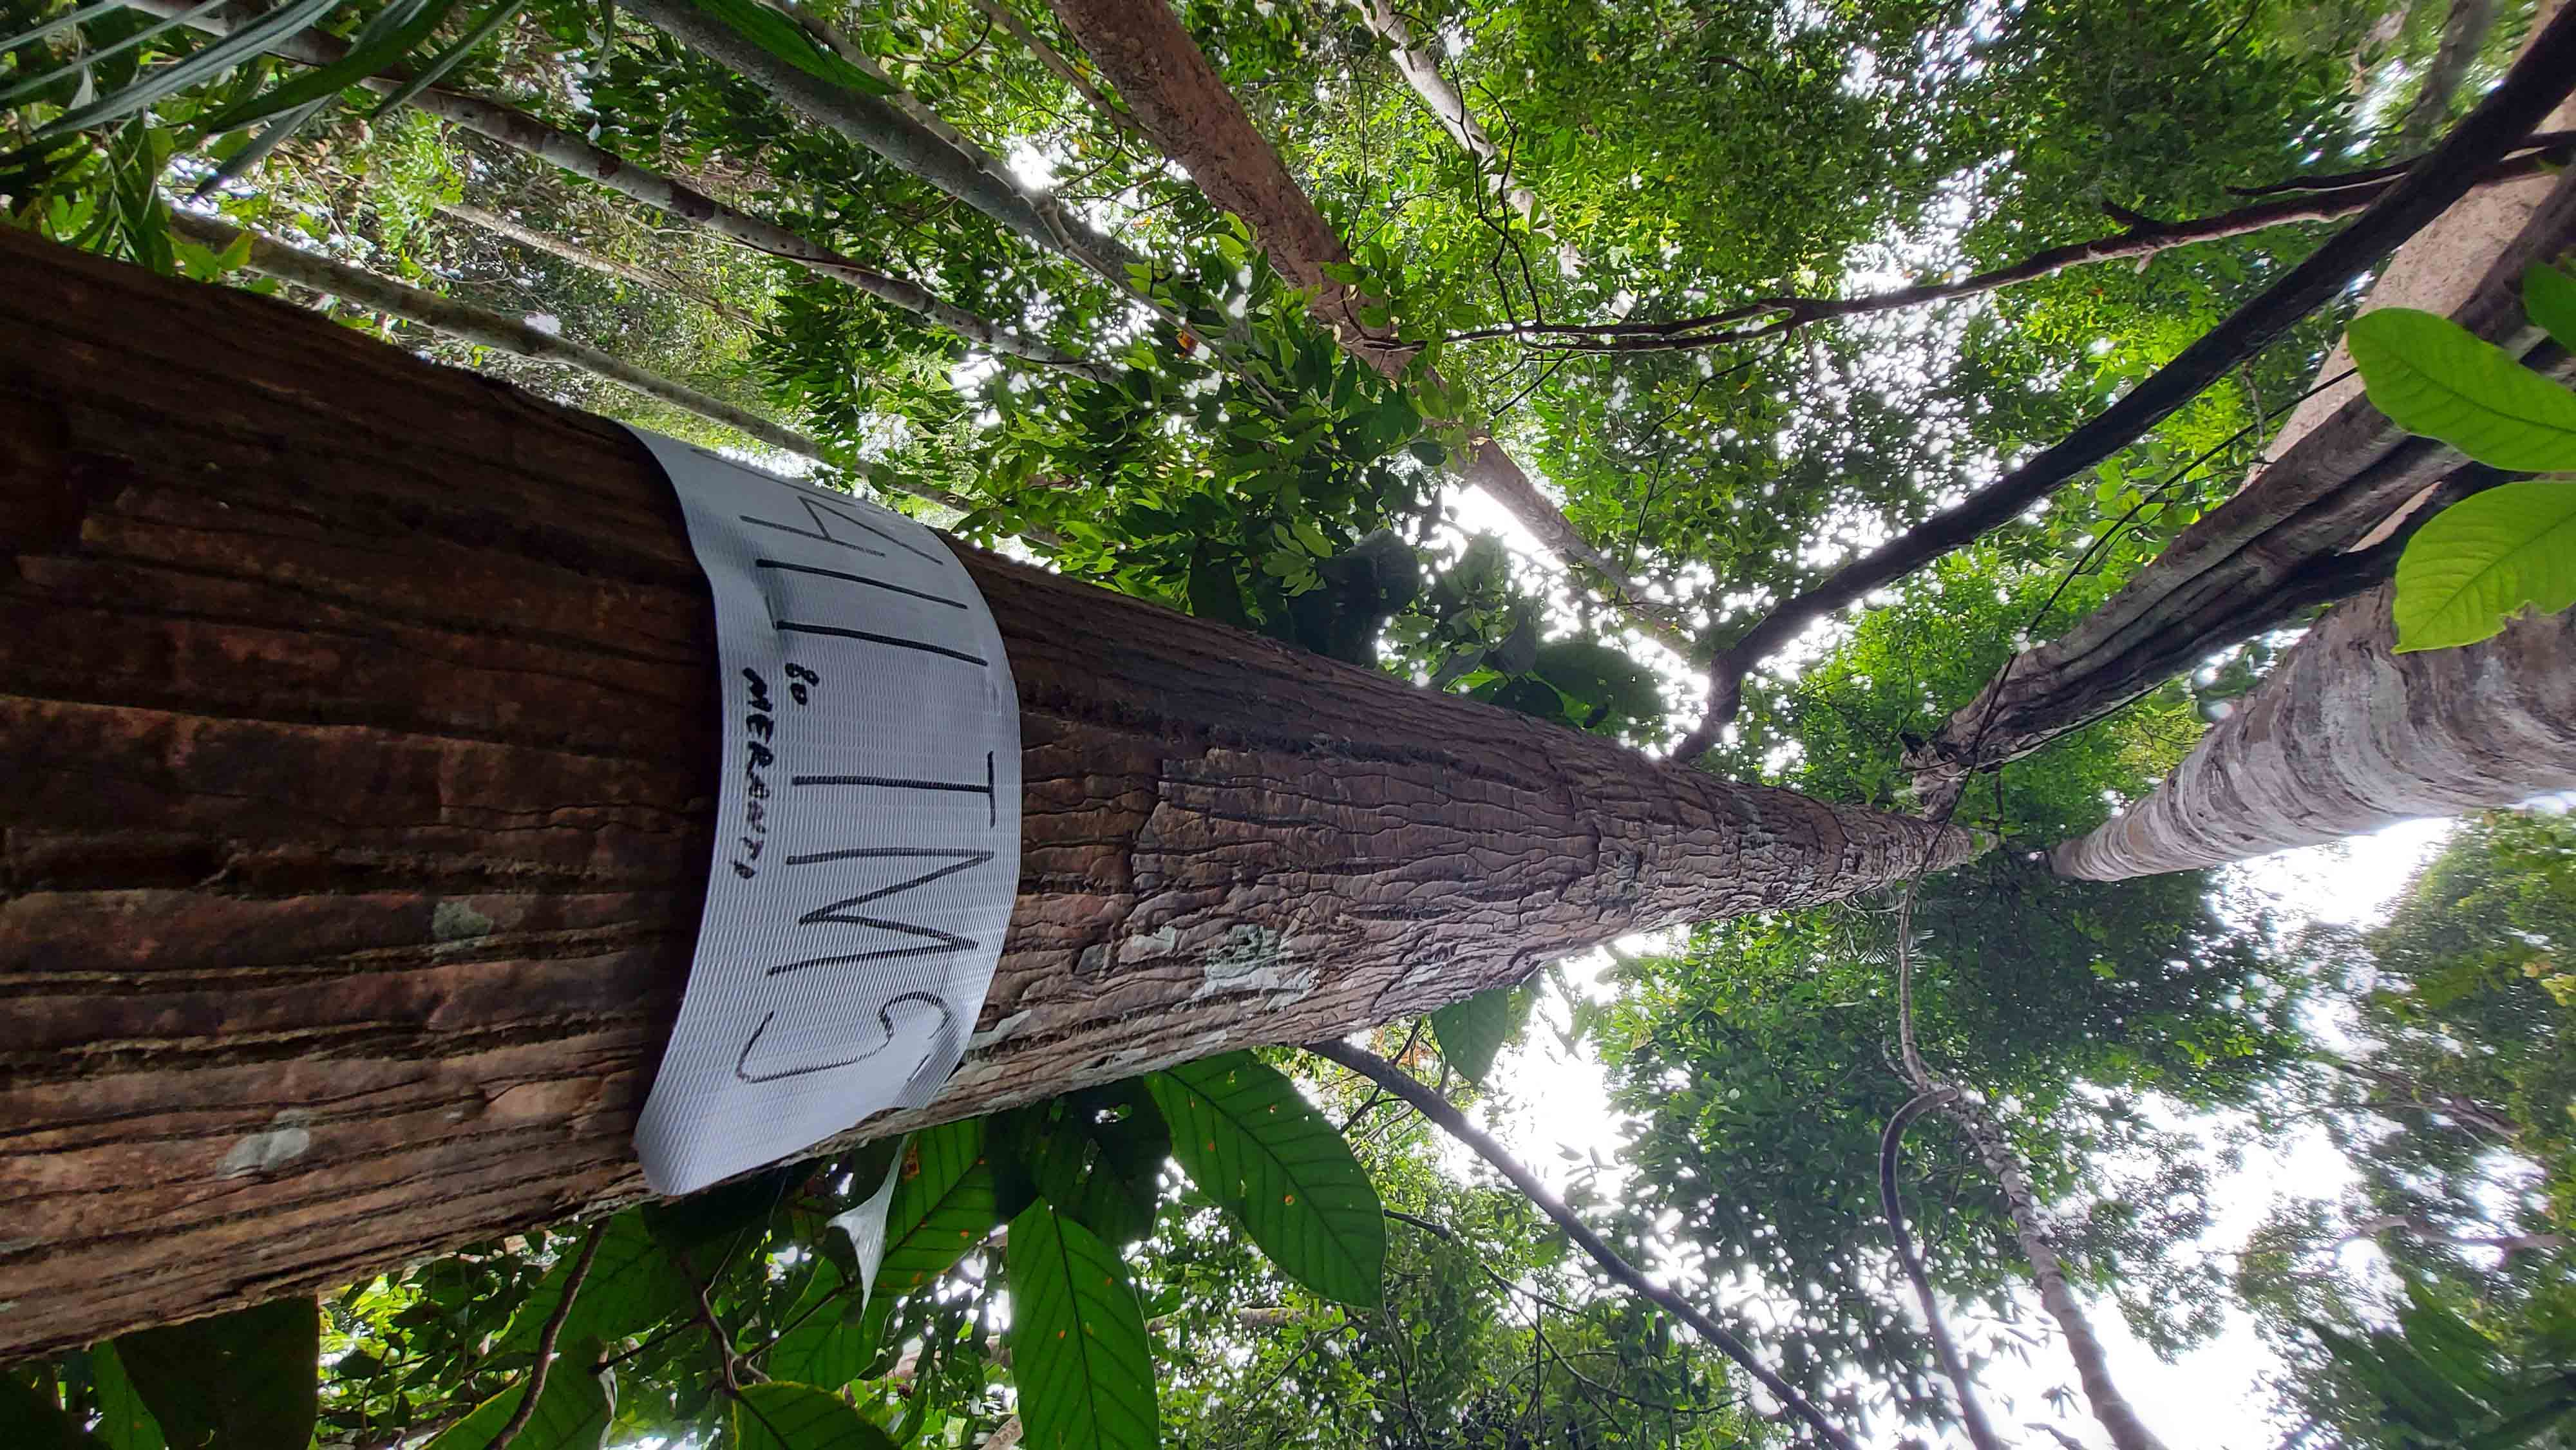 411 TMS
80
MERANTI